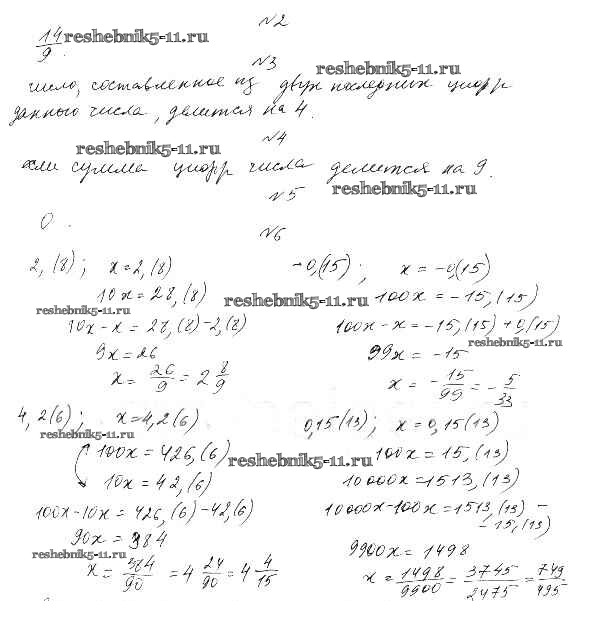 №2
14/9. reshebnik5-11.ru
№3 reshebnik5-11.ru
число, составленное из двух последних цифр
данного числа, делится на 4.
reshebnik5-11.ru №4
если сумма цифр числа делится на 9.
№5 reshebnik5-11.ru
0.
№6
2,(8); x=2,(8)
10x=28,(8)
reshebnik5-11.ru
10x-x=28,(8)-2,(8)
9x=26
x=26/9=2 8/9
-0,(15); x=-0,(15)
reshebnik5-11.ru 100x=-15,(15)
100x-x=-15,(15)+0,(15)
reshebnik5-11.ru
99x=-15
x=-15/99=-5/33
4,2(6); x=4,2(6)
reshebnik5-11.ru
100x=426,(6)
10x=42,(6)
100x-10x=426,(6)-42,(6)
90x=384
reshebnik5-11.ru
x=384/90=4 24/90=4 4/15
0,15(13); x=0,15(13)
reshebnik5-11.ru 100x=15,(13)
10000x=1513,(13)
10000x-100x=1513,(13)-
-15,(13)
9900x=1498
x=1498/9900=3745/2475=749/495